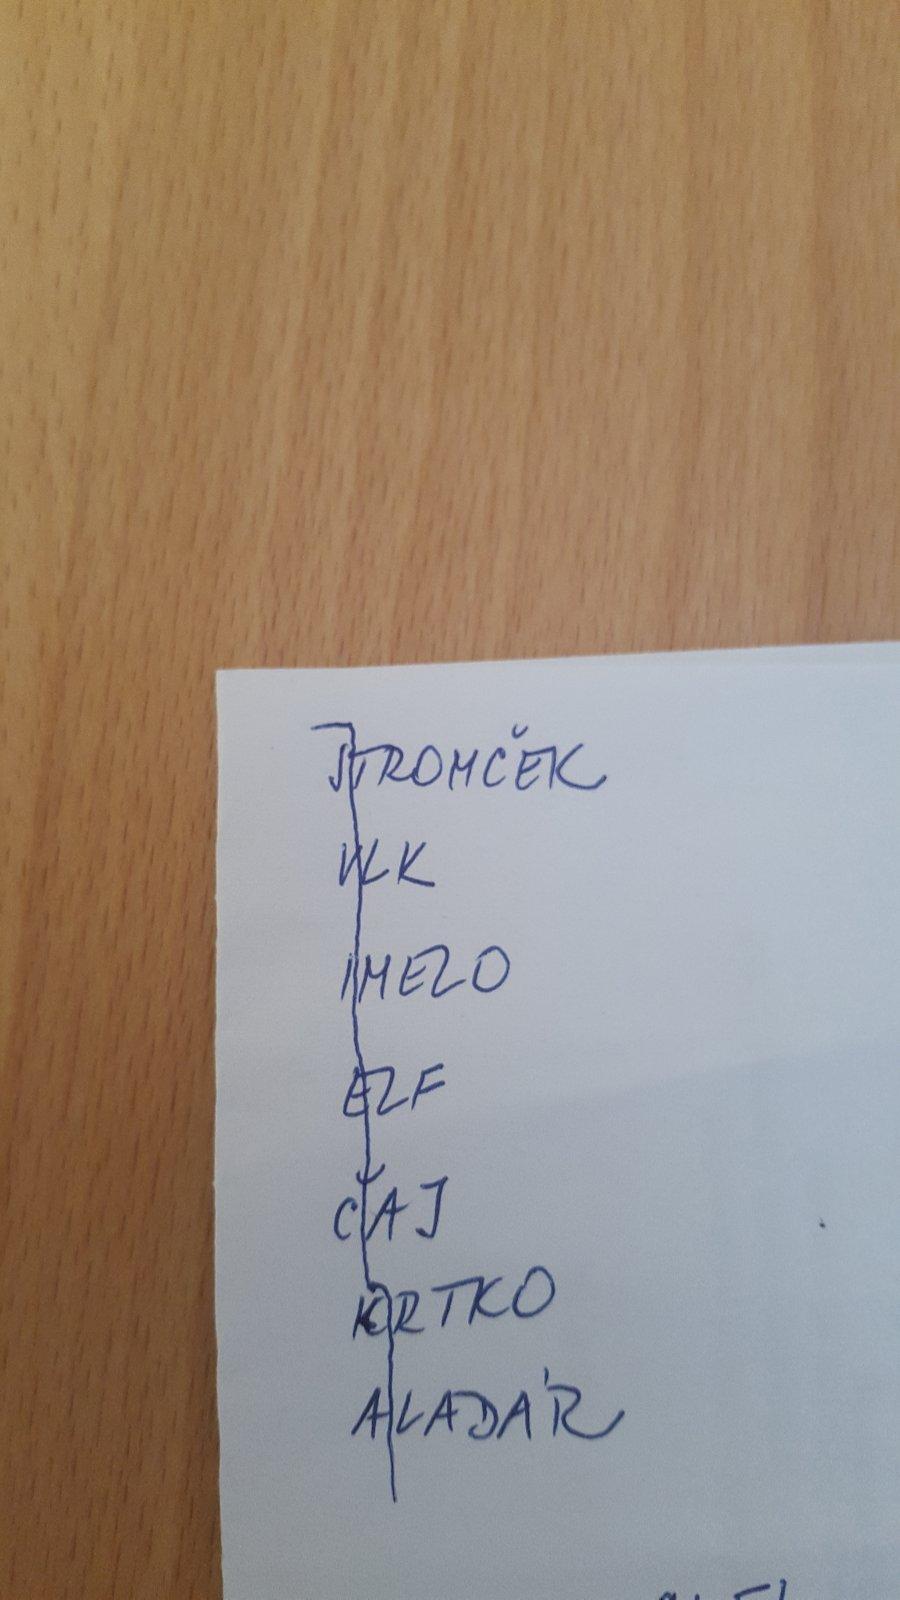 STROMČEK
VLK
IMELO
ELF
ČAJ
KRTKO
ALADÁR